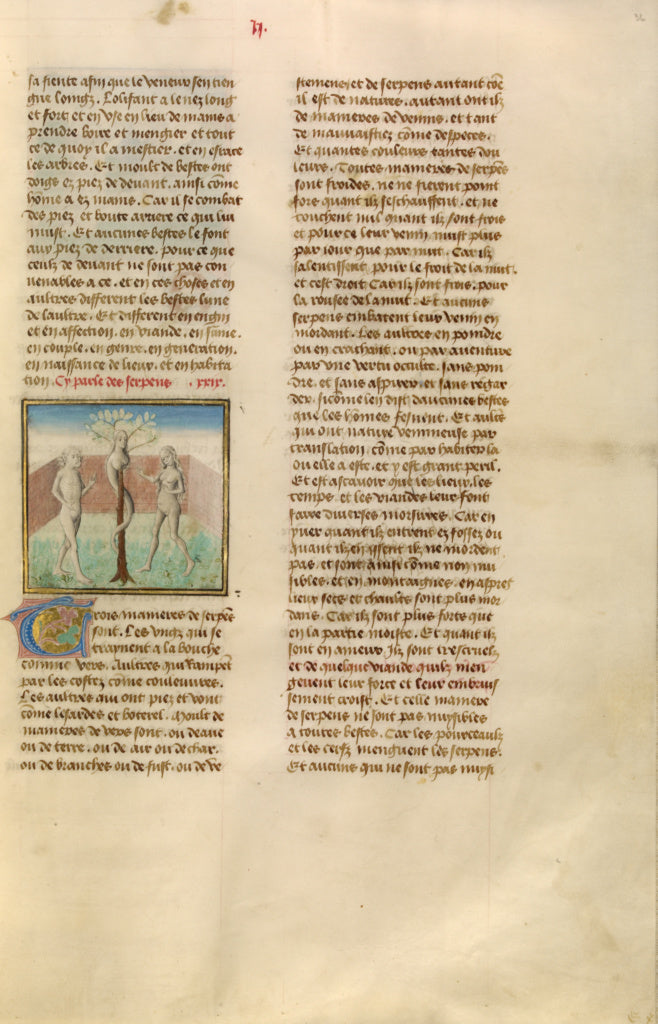 II.
sa fiente afin que le veneur sen tien
gne loingz. Lolifant a le nez long
et fort et en vse en lieu de mains a
prendre boire et mengier et tout
ce de quoy il a mestier. et en estace
les arbres. Et moult de bestes ont
doigs ez piez de deuant. ainsi cõme
hõme a ez mains. Car il se combat
des piez et boute arriere ce qui lui
nuist. Et aucunes bestes le font
aux piez de derriere. pour ce que
ceulz de deuant ne sont pas con
uenables a ce. et en ces choses et en
aultres different les bestes lune
de laultre. Et different en engin
et en affection. en viande. en fame.
en couple. en genre. en generation.
en naissance de lieux. et en habita
tion. Cy parle des serpens .xxix.
Trois manieres de serpẽs
sont. Les vngz qui se
traynent a la bouche
comme vers. Aultres qui rampẽt
par les costez cõme couleuures.
Les aultres qui ont piez et vont
cõme lesardes et boterel. Moult de
manieres de vers sont. ou deaue
ou de terre. ou de air ou de char.
ou de branches ou de fust. ou de ve
stemens et de serpens autant cõe
il est de natures. autant ont ilz
de manieres de venins. et tant
de mauuaistiez cõme despeces.
Et quantes couleurs tantes dou
leurs. Toutes manieres de serpẽs
sont froides. ne ne fierent point
fors quant ilz seschauffent. et ne
touchent nul quant ilz sont frois
et pour ce leur venin nuist plus
par iour que par nuit. Car ilz
salentissent pour le froit de la nuit.
et cest droit Car ilz sont frois. pour
la rousee de la nuit. Et aucuns
serpens embatent leur venin en
mordant. Les aultres en poindre
ou en crachant. ou par auenture
par vne vertu occulte. sans poin
dre. et sans aspirer et sans regar
der. sicõme len dist daucunes bestes
que les hõmes fesuient. Et aultẽs
qui ont nature venimeuse par
translation. cõme par habiter la
ou elle a este. et y est grant peril.
Et est ascauoir que les lieux. les
temps. et les viandes leur font
faire diuerses morsures. Car en
yuer quant ilz entrent ez fossez ou
quant ilz en issent ilz ne mordent
pas. et sont ainsi cõme non nui
sibles. et en montaignes. en aspres
lieux secs et chaulx sont plus mor
dans. Car ilz sont plus fors que
en la partie moiste. Et quant ilz
sont en amour. ilz sont trescruelz
et de quelque viande quilz men
geuent leur force et leur
sement croist. Et celle maniere
de serpens ne sont pas nuysibles
a toutes bestes. Car les pourceaulx
et les cerfz menguent les serpens.
Et aucuns qui ne sont pas nuysi